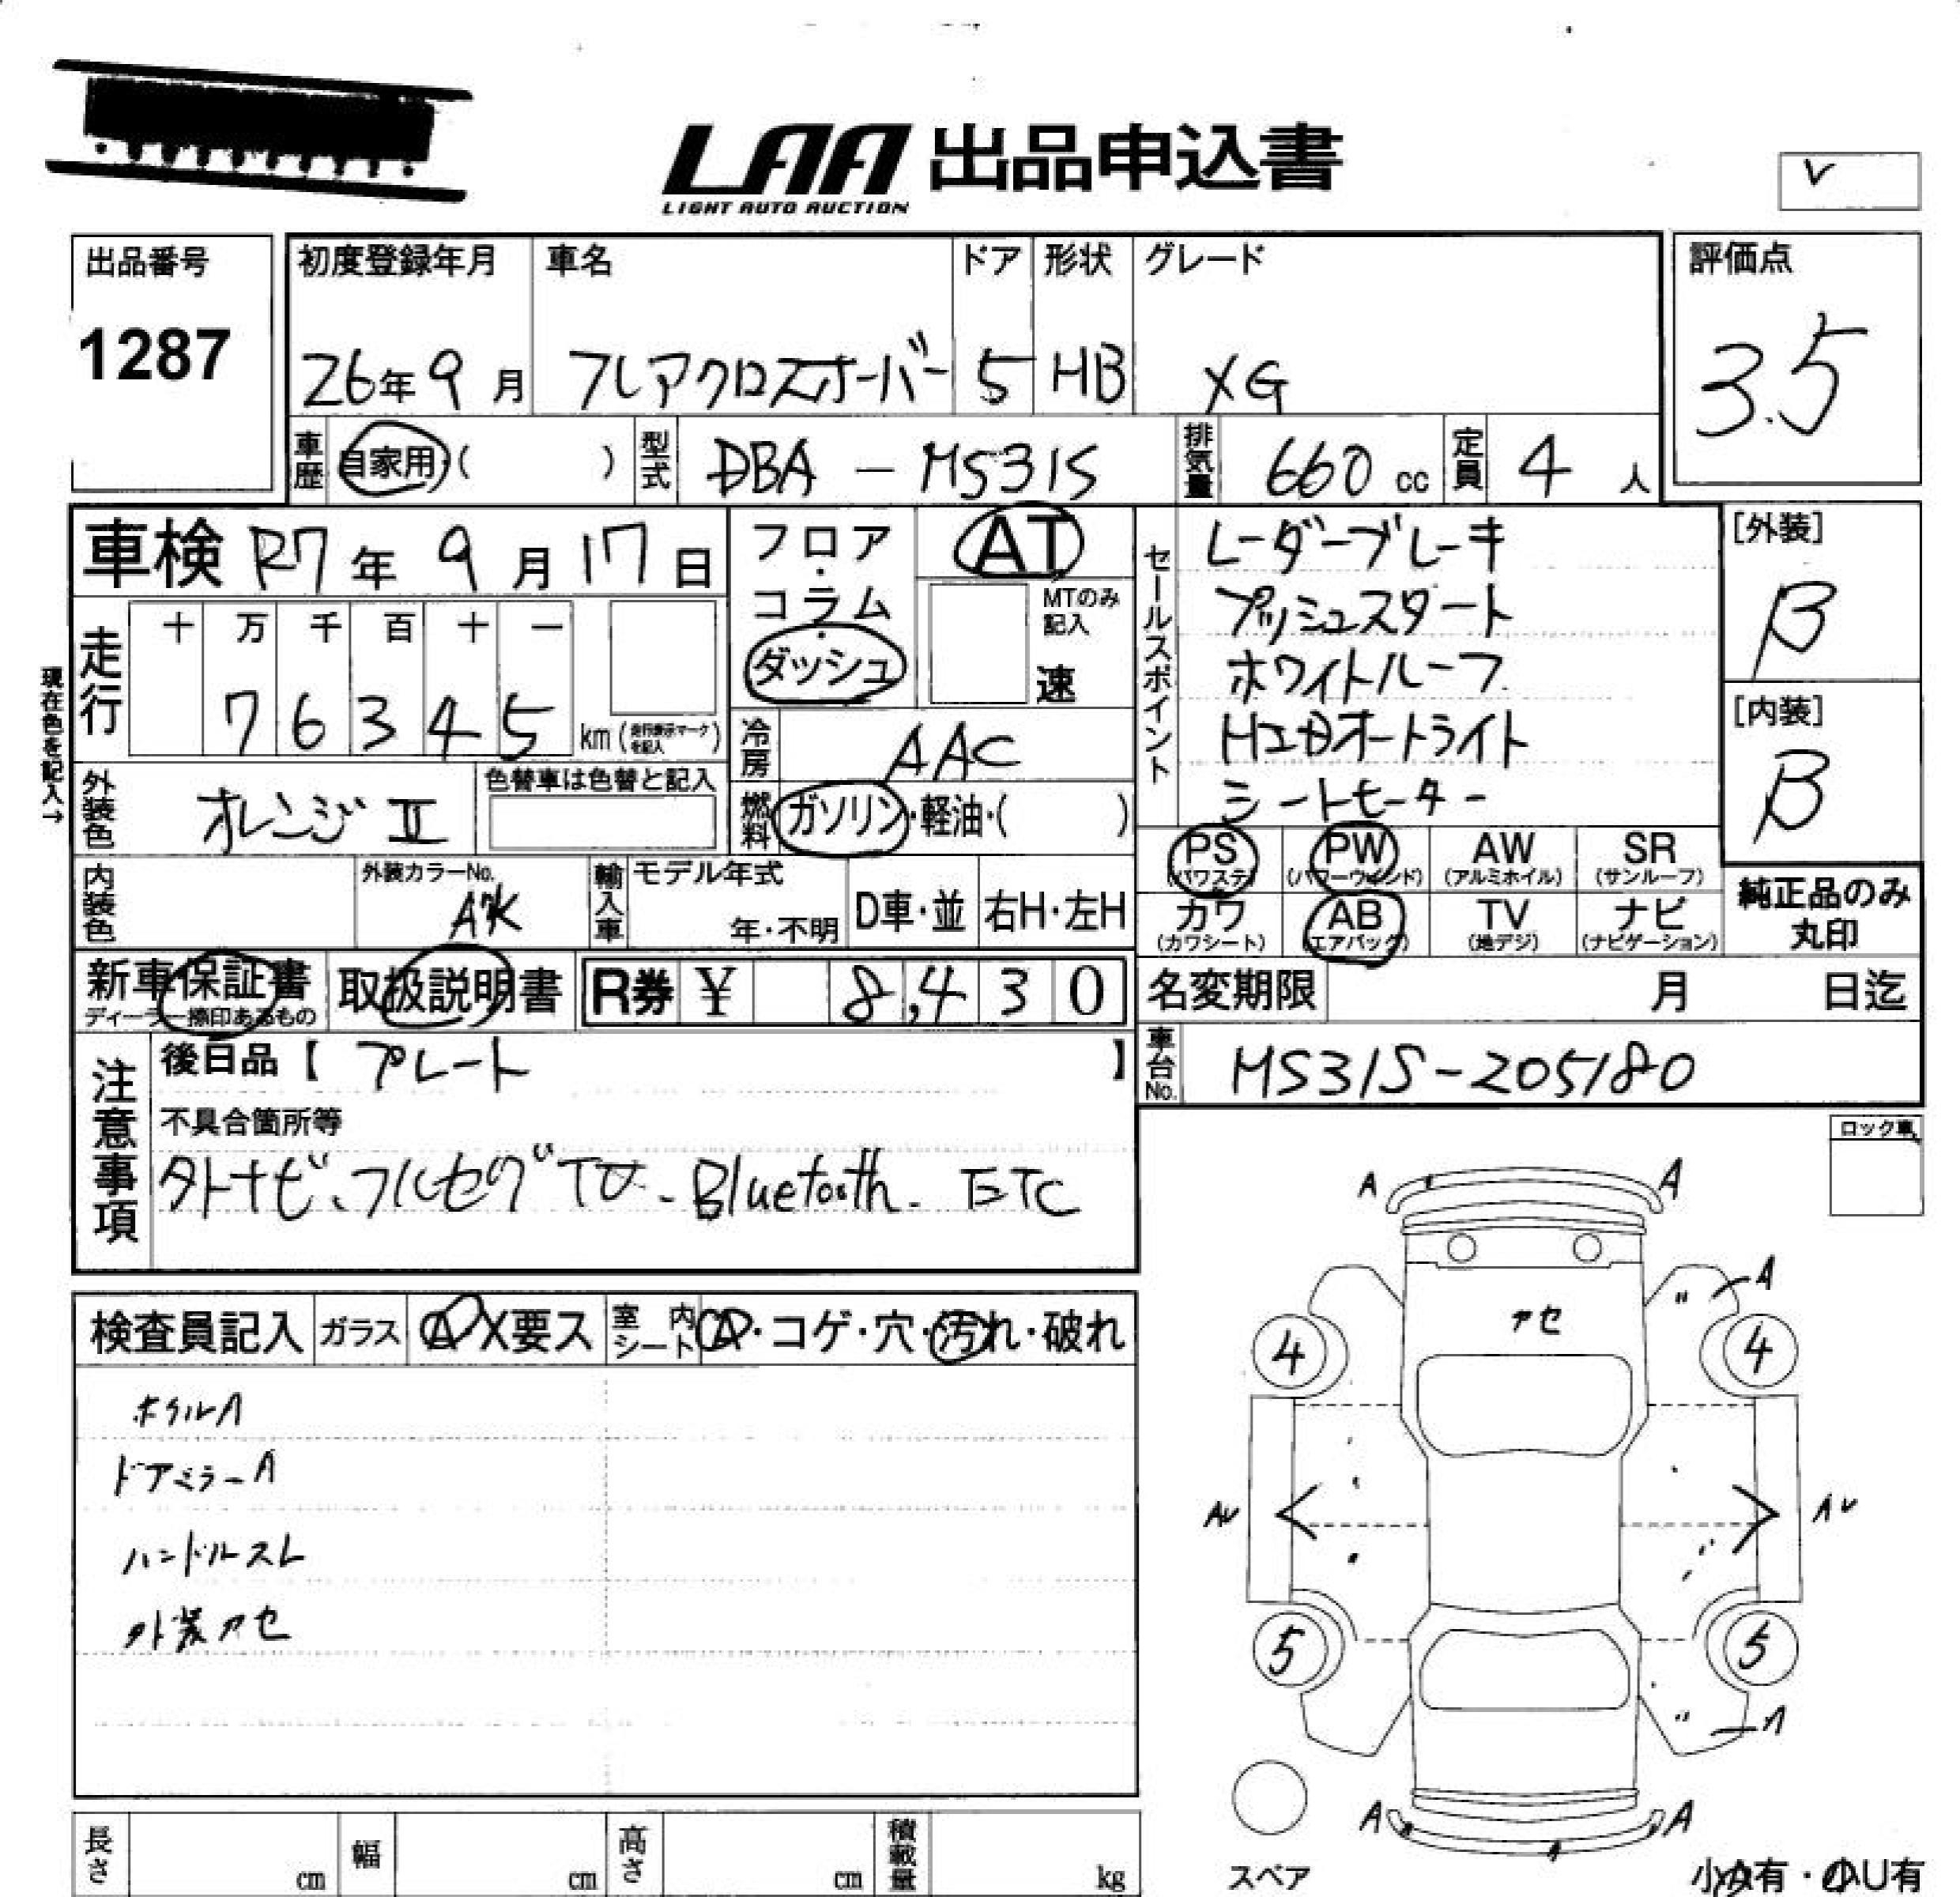 LAA 出品申込書
LIGHT AUTO AUCTION
V
出品番号
1287
初度登録年月 車名 ドア 形状 グレード
26年9月 フレアクロスオーバー 5 HB XG
評価点
3.5
車歴 自家用・( ) 型式 DBA - MS31S 排気量 660 cc 定員 4 人
車検 R7年9月17日
フロア・コラム・ダッシュ
AT
MTのみ記入
速
セールスポイント
レーダーブレーキ
プッシュスタート
ホワイトルーフ
HIDオートライト
シートヒーター
[外装]
B
[内装]
B
現在色を記入→
走行 十 万 千 百 十 一
76345 km (走行表示マークを記入)
冷房 AAC
外装色 オレンジII 色替車は色替と記入
燃料 ガソリン・軽油・( )
PS PW AW SR
(パワステ) (パワーウィンド) (アルミホイル) (サンルーフ)
カワ AB TV ナビ
(カワシート) (エアバッグ) (地デジ) (ナビゲーション)
純正品のみ
丸印
内装色 外装カラーNo. 輸入車 モデル年式
年・不明 D車・並 右H・左H
新車保証書 取扱説明書 R券 ¥ 8,430
ディーラー捺印あるもの
名変期限 月 日迄
車台No. MS31S-205180
注意事項
後日品【 プレート 】
不具合箇所等
外ナビ、フルセグTV、Bluetooth、ETC
ロック車
検査員記入 ガラス A X要ス 室内シート A・コゲ・穴・汚れ・破れ
ホイルA
ドアミラーA
ハンドルスレ
外装アセ
A A
A
アセ
4 4
AU AU
5 5
A
A A
A
スペア
小有・小U有
長さ cm 幅 cm 高さ cm 積載量 kg